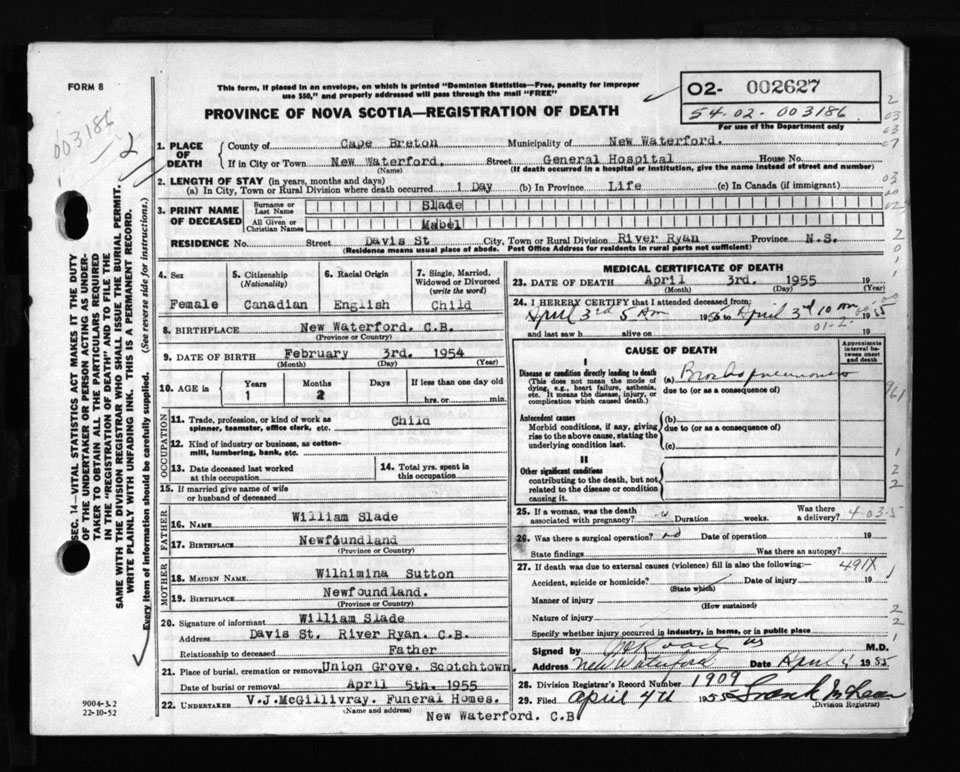 FORM 8
This form, if placed in an envelope, on which is printed "Dominion Statistics—Free, penalty for improper
use $50," and properly addressed will pass through the mail "FREE"
PROVINCE OF NOVA SCOTIA—REGISTRATION OF DEATH
02- 002627
54-02-003186
For use of the Department only
003186
2
1. PLACE OF DEATH
County of Cape Breton Municipality of New Waterford.
If in City or Town New Waterford. Street General Hospital House No.
(Name) (If death occurred in a hospital or institution, give the name instead of street and number)
2. LENGTH OF STAY (in years, months and days)
(a) In City, Town or Rural Division where death occurred 1 Day (b) In Province Life (c) In Canada (if immigrant)
3. PRINT NAME OF DECEASED
Surname or Last Name Slade
All Given or Christian Names Mabel
RESIDENCE No. Street Davis St City, Town or Rural Division River Ryan Province N.S.
(Residence means usual place of abode. Post Office Address for residents in rural parts not sufficient)
4. Sex Female
5. Citizenship (Nationality) Canadian
6. Racial Origin English
7. Single, Married, Widowed or Divorced (write the word) Child
8. BIRTHPLACE New Waterford. C.B.
(Province or Country)
9. DATE OF BIRTH February 3rd. 1954
(Month) (Day) (Year)
10. AGE in Years 1 Months 2 Days If less than one day old hrs. or min.
OCCUPATION
11. Trade, profession, or kind of work as spinner, teamster, office clerk, etc. Child
12. Kind of industry or business, as cotton-mill, lumbering, bank, etc.
13. Date deceased last worked at this occupation
14. Total yrs. spent in this occupation
15. If married give name of wife or husband of deceased
FATHER
16. NAME William Slade
17. BIRTHPLACE Newfoundland
(Province or Country)
MOTHER
18. MAIDEN NAME Wilhimina Sutton
19. BIRTHPLACE Newfoundland.
(Province or Country)
20. Signature of informant William Slade
Address Davis St. River Ryan. C.B.
Relationship to deceased Father
21. Place of burial, cremation or removal Union Grove. Scotchtown.
Date of burial or removal April 5th. 1955
22. UNDERTAKER V.J.McGillivray. Funeral Homes.
(Name and address)
New Waterford. C.B
9004-3.2
22-10-52
MEDICAL CERTIFICATE OF DEATH
23. DATE OF DEATH April 3rd. 1955 19
(Month) (Day) (Year)
24. I HEREBY CERTIFY that I attended deceased from:
April 3rd 5 am 1955 to April 3rd 10 am 1955
and last saw h alive on 19
CAUSE OF DEATH
Approximate interval between onset and death
I
Disease or condition directly leading to death (a) Bronchopneumonia
(This does not mean the mode of dying, e.g., heart failure, asthenia, etc. It means the disease, injury, or complication which caused death.)
due to (or as a consequence of)
Antecedent causes
Morbid conditions, if any, giving rise to the above cause, stating the underlying condition last.
(b)
due to (or as a consequence of)
(c)
II
Other significant conditions
contributing to the death, but not related to the disease or condition causing it.
25. If a woman, was the death associated with pregnancy? Duration weeks. Was there a delivery? 4-03-5
26. Was there a surgical operation? no Date of operation 19
State findings Was there an autopsy?
27. If death was due to external causes (violence) fill in also the following:—
491X
Accident, suicide or homicide? Date of injury 19
(State which)
Manner of injury
(How sustained)
Nature of injury
Specify whether injury occurred in industry, in home, or in public place
Signed by M.D.
Address New Waterford Date April 4 1955
28. Division Registrar's Record Number 1909
29. Filed April 4th 1955 Frank
(Division Registrar)
SEC. 14—VITAL STATISTICS ACT MAKES IT THE DUTY
OF THE UNDERTAKER OR PERSON ACTING AS UNDER-
TAKER TO OBTAIN ALL THE PARTICULARS REQUIRED
IN THE "REGISTRATION OF DEATH" AND TO FILE THE
SAME WITH THE DIVISION REGISTRAR WHO SHALL ISSUE THE BURIAL PERMIT.
WRITE PLAINLY WITH UNFADING INK. THIS IS A PERMANENT RECORD.
Every item of information should be carefully supplied. (See reverse side for instructions.)